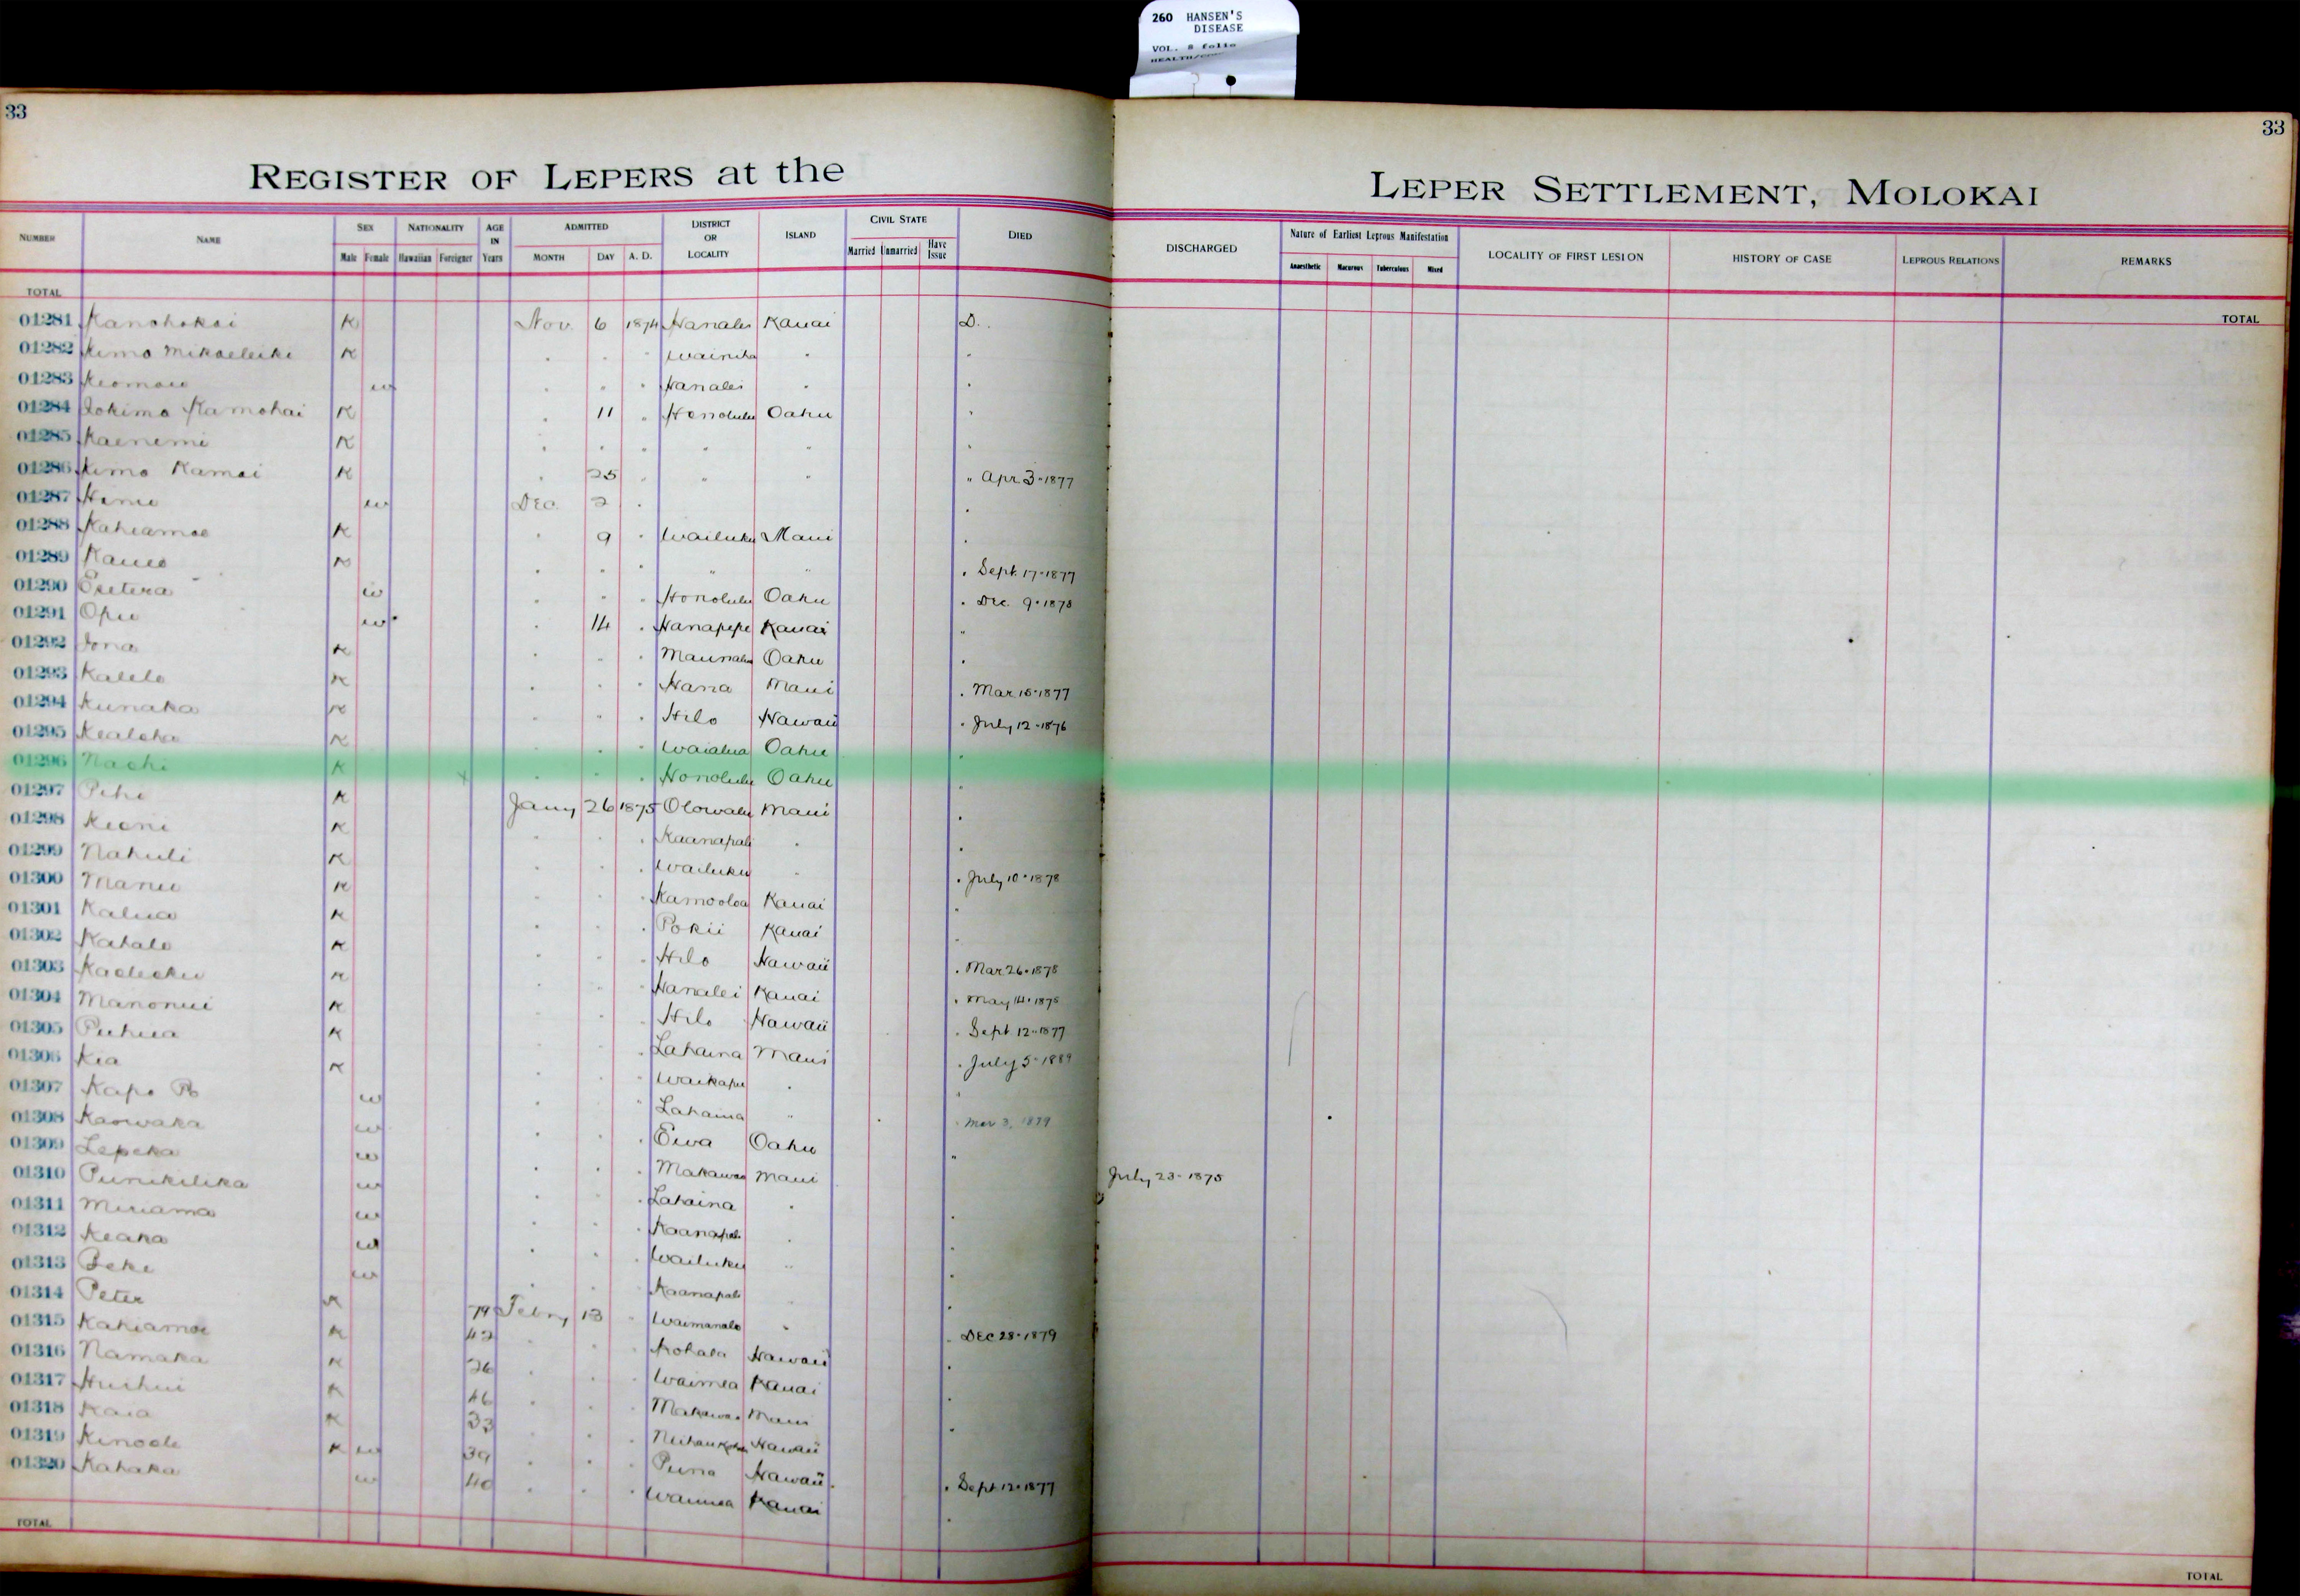 260 HANSEN'S
DISEASE
VOL. 8 folio
33
33
REGISTER OF LEPERS at the LEPER SETTLEMENT, MOLOKAI
NUMBER NAME SEX NATIONALITY AGE IN Years ADMITTED DISTRICT OR LOCALITY ISLAND CIVIL STATE DIED DISCHARGED Nature of Earliest Leprous Manifestation LOCALITY OF FIRST LESION HISTORY OF CASE LEPROUS RELATIONS REMARKS
Male Female Hawaiian Foreigner MONTH DAY A. D. Married Unmarried Have Issue Anaesthetic Macurous Tuberculous Mixed
TOTAL TOTAL
01281 Kanohokai K Nov. 6 1874 Hanalei Kauai D.
01282 Kimo Mikaeleike K " " " Wainiha " "
01283 Keomaie w " " " Hanalei " "
01284 Iokimo Kamohai K " 11 " Honolulu Oahu "
01285 Kaenemi K " " " " " "
01286 Kimo Kamai K " 25 " " " " Apr 3-1877
01287 w Dec. 2 " "
01288 Kahiamoe K " 9 " Wailuku Maui "
01289 Kaueo K " " " " " " Sept. 17-1877
01290 w " " " Honolulu Oahu " Dec. 9-1878
01291 Opu w " 14 " Hanapepe Kauai "
01292 Iona K " " " Maunalua Oahu "
01293 Kalelo K " " " Hana Maui " Mar 15-1877
01294 Kunaka K " " " Hilo Hawaii " July 12-1876
01295 Kealoha K " " Waialua Oahu "
01296 Naohi K " " " Honolulu Oahu "
01297 Pihi K Jany 26 1875 Olowalu Maui "
01298 Keoni K " " " Kaanapali " "
01299 Nahuli K " " " Wailuku " " July 10-1878
01300 Manu K " " " Kamooloa Kauai "
01301 Kalua K " " " Pokii Kauai "
01302 Kahalo K " " " Hilo Hawaii " Mar 26-1878
01303 K " " " Hanalei Kauai " May 14-1875
01304 Manonui K " " " Hilo Hawaii " Sept 12-1877
01305 Puhua K " " " Lahaina Maui " July 5-1889
01306 Kia K " " " Waikapu " "
01307 Kapo w " " " Lahaina " " Mar 3, 1879
01308 Kaowaka w " " " Ewa Oahu "
01309 Lepeka w " " " Makawao Maui July 23-1875
01310 Punikilika w " " " Lahaina " "
01311 Miriama w " " " Kaanapali " "
01312 Keaka w " " " Wailuku " "
01313 Beke w " " " Kaanapali " "
01314 Peter K 79 Febry 13 " Waimanalo " " Dec 28-1879
01315 Kahiamoe K 42 " " " Kohala Hawaii "
01316 Namaka K 26 " " " Waimea Kauai "
01317 Huihui K 46 " " " Makawao Maui "
01318 Kaia K 33 " " " Hawaii
01319 Kinoole K w 39 " " " Puna Hawaii " Sept 12-1877
01320 Kahaka w 40 " " " Waimea Kauai "
TOTAL TOTAL